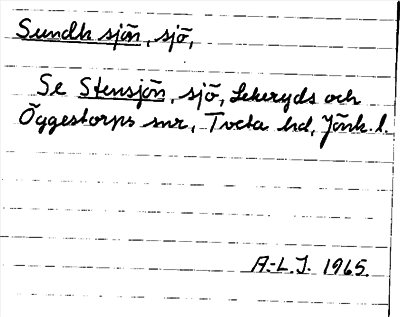 Sundh sjön, sjö,
Se Stensjön, sjö, Lekeryds och
Öggestorps snr, Tveta hd, Jönk. l.
A.-L.J. 1965.